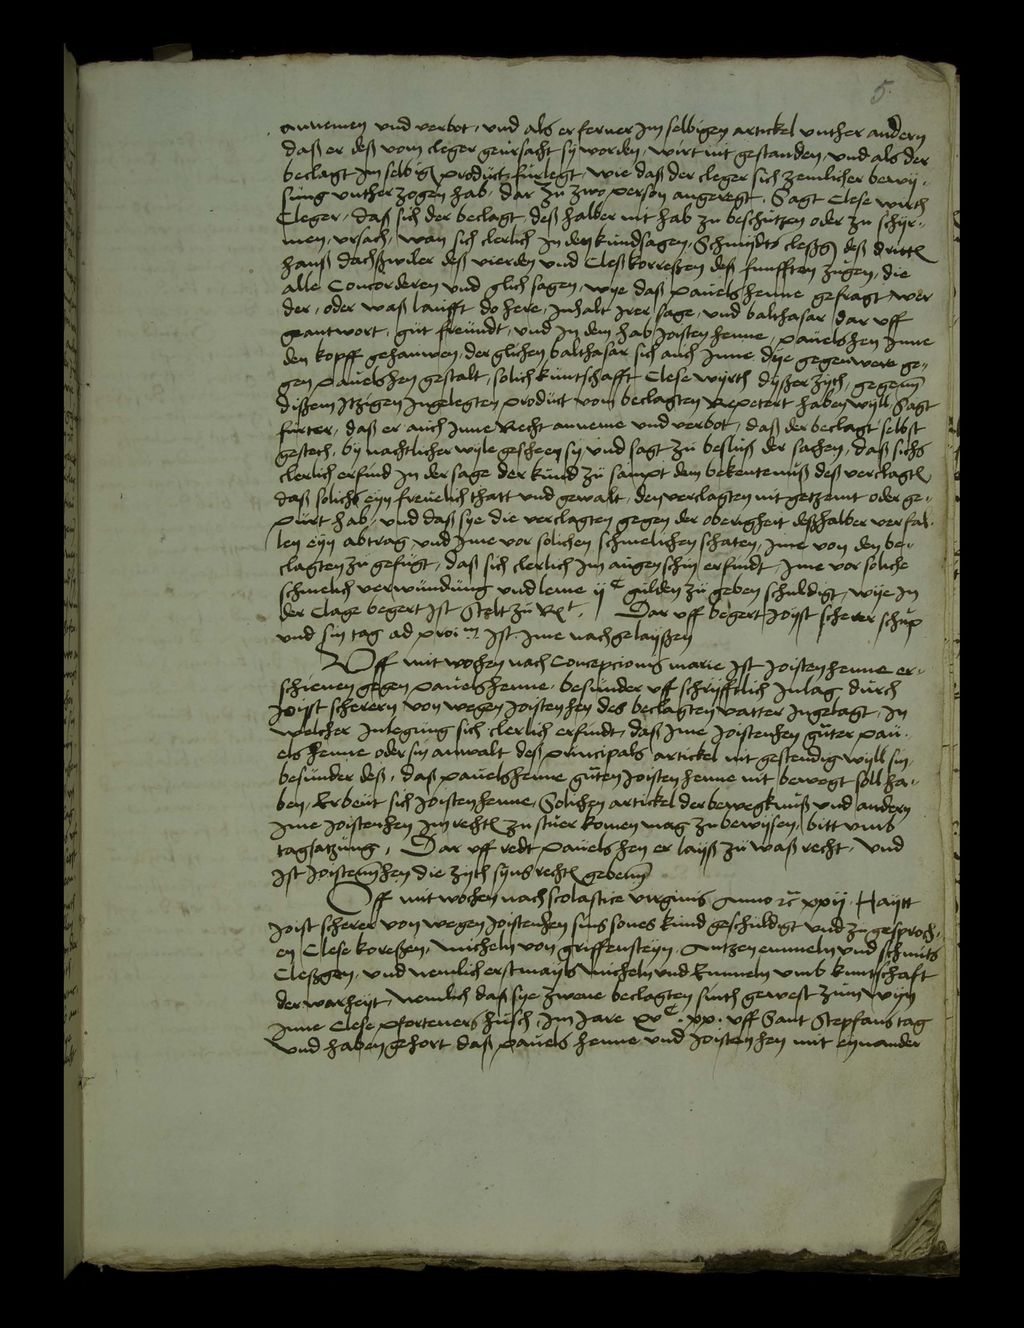 5.
annemen vnd verbot, vnd als er ferner im selbigen artickel vnther andern
daß er deß vom cleger geursacht sy worden, wirt nit gestanden, vnd als der
beclagt im selbigen product furlegt, wie daß der cleger sich zemlicher bewy-
sung vnther zogen hab, dar zu zwo person angeregt, Sagt Clese wirth
Cleger, daß sich der beclagt deß halber nit hab zu beschutzen oder zu schyr-
men, vrsach, wan sich clerlich in den kundsagen, Schmydts deß dritten
hanß dachßwiler deß vierden vnd Cleß korreßen deß funfften zugen, die
alle Concorderen vnd glich sagen, wye daß pauels henne gefragt wer
der, oder waß laufft do here, Inhalt irer sage, vnd balthasar dar vff
geantwort, gut freundt, vnd in dem hab Joisten henne, pauelshen inne
den kopff gehauwen, der glichen balthasar sich auch Inne dye gegenwere ge-
gen pauelshen gestalt, solich kuntschafft Clese wyrth dyßer zyth, gegen
dißem Itzigen Ingelegten product vom beclagten Repetert haben wyll, Sagt
furter, daß er auch Inne Recht anneme vnd verbot, daß der beclagt selbst
gestech, by nachtlicher wyle gescheen sy vnd sagt zu besluß der sachen, daß sichs
clerlich erfind in der sage der kund zu sampt dem bekentenuß deß verclagten
daß solichs eyn freuelich thatt vnd gewalt, den verclagten nit getzemt oder ge-
purt hab, vnd daß sye die verclagten gegen der oberigheit deßhalber verfal-
len eyn abtrag vnd ime vor solichen schmelichen schaten, ime von den be-
clagten zu gefugt, daß sich clerlich im augen schin erfindt, Ime vor soliche
schmelich verwundung vnd leme ij c gulden zu geben schuldigt, wye in
der Clage begert ist Stelt zu Rt. Dar vff begert Joist scherer schup
vnd sin tag ad proximam ist ime nachgelaysßen
Vff mitwochen nach Concepcionis marie ist Joisten henne er-
schienen gegen pauels henne, besunder vff schryfftlich Inlag durch
Joist scherern von wegen Joisten hen des beclagten vatter Ingelagt, In
welcher Inlegung sich clerlich erfindt, daß ime Joistenhen guter pau-
els henne oder sin anwalt deß principals artickel nit gestendig wyll sin,
besunder deß, daß pauels henne guten Joisten henne nit bewegt soll ha-
ben, Erbeut sich Joisten henne, Solichen artickel der bewegknuß vnd andern
ime Joistenhen im rechten zu stuer komen mag zu bewysen, bitt vmb
tagsatzung, Dar vff redt pauels hen er layß zu waß recht, vnd
ist Joistenhen die zyth syns rechten geben
Vff mitwochen nach scolastice virginis Anno xxij, Haytt
Joist scherer von wegen Joistenhen sins sones kund geschuldigt vnd zu gesproch-
en Clese koreßen, Micheln von Griffensteyn, Antzen emmeln vnd schmits
Cleßgen, vnd nemlich erstmayls Micheln vnd Emmeln vmb kuntschaft
der warheyt, Nemlich daß sye zwene beclagten sinth gewest zum wyn
Inne Clese pforteners husch, Im Jare xv c xx. vff Sant Stepfans tag
vnd haben gehort daß pauels henne vnd Joisten hen mit eynander